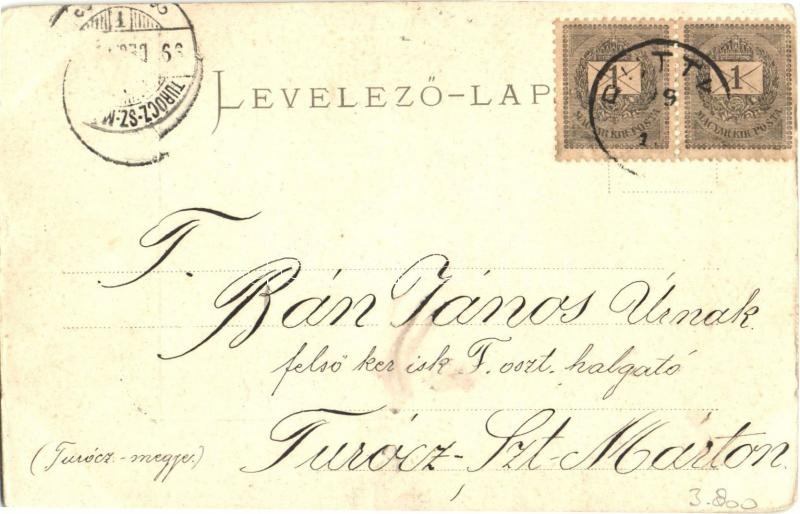 TURÓCZ-SZ-M
99 DEC
1 1
MAGYAR KIR. POSTA MAGYAR KIR. POSTA
LEVELEZŐ-LAP
T.
Bán János Úrnak
felső ker isk F. oszt. halgató
Turócz-Szt-Márton.
(Turócz.-megye.)
3.800